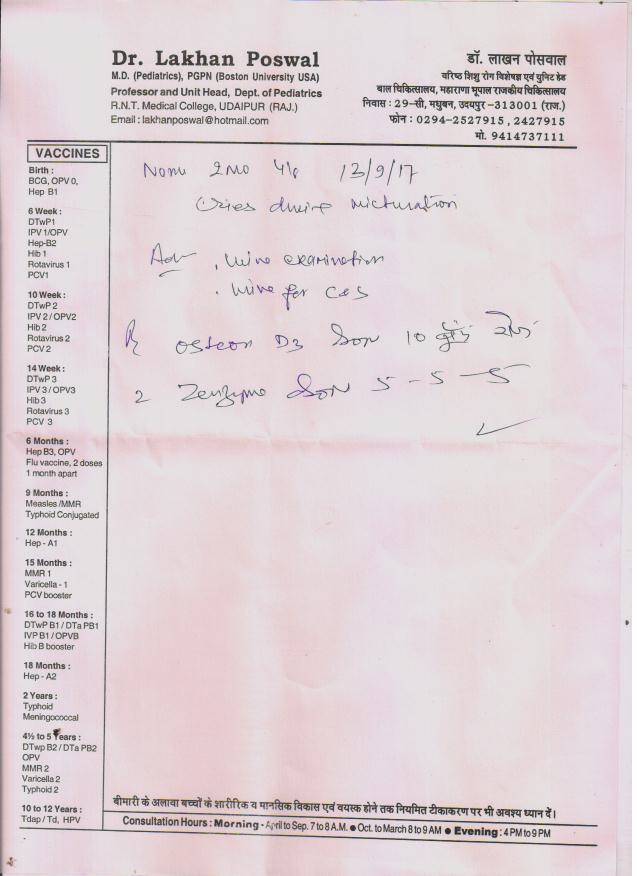 Dr. Lakhan Poswal
M.D. (Pediatrics), PGPN (Boston University USA)
Professor and Unit Head, Dept. of Pediatrics
R.N.T. Medical College, UDAIPUR (RAJ.)
Email : lakhanposwal@hotmail.com
डॉ. लाखन पोसवाल
वरिष्ठ शिशु रोग विशेषज्ञ एवं युनिट हेड
बाल चिकित्सालय, महाराणा भूपाल राजकीय चिकित्सालय
निवास : 29-सी, मधुबन, उदयपुर -313001 (राज.)
फोन : 0294-2527915 , 2427915
मो. 9414737111
VACCINES
Birth :
BCG, OPV 0,
Hep B1
6 Week :
DTwP1
IPV 1/OPV
Hep-B2
Hib 1
Rotavirus 1
PCV1
10 Week :
DTwP 2
IPV 2 / OPV2
Hib 2
Rotavirus 2
PCV 2
14 Week :
DTwP 3
IPV 3 / OPV3
Hib 3
Rotavirus 3
PCV 3
6 Months :
Hep B3, OPV
Flu vaccine, 2 doses
1 month apart
9 Months :
Measles /MMR
Typhoid Conjugated
12 Months :
Hep - A1
15 Months :
MMR 1
Varicella - 1
PCV booster
16 to 18 Months :
DTwP B1 / DTa PB1
IVP B1 / OPVB
Hib B booster
18 Months :
Hep - A2
2 Years :
Typhoid
Meningococcal
4½ to 5 Years :
DTwp B2 / DTa PB2
OPV
MMR 2
Varicella 2
Typhoid 2
10 to 12 Years :
Tdap / Td, HPV
2 MO 13/9/17
Cries during micturation
Adv . Urine examination
. Urine for C&S
Rx D3 10
2 Zenzyme 5 - 5 - 5
बीमारी के अलावा बच्चों के शारीरिक व मानसिक विकास एवं वयस्क होने तक नियमित टीकाकरण पर भी अवश्य ध्यान दें।
Consultation Hours : Morning - April to Sep. 7 to 8 A.M. ● Oct. to March 8 to 9 AM ● Evening : 4 PM to 9 PM